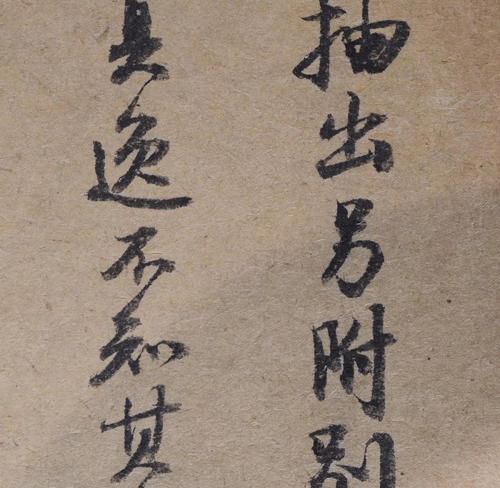 抽出另附别
具逸不知其